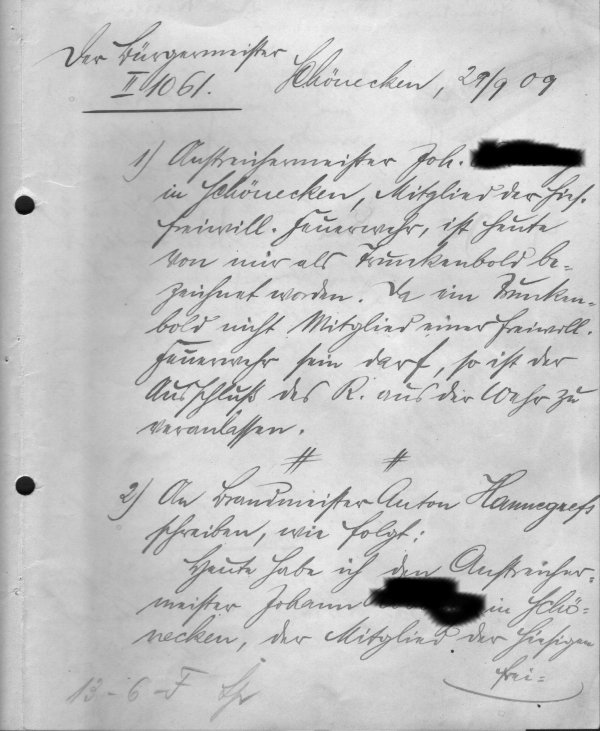 Der Bürgermeister
II 1061.
Schönecken, 29/9 09
1) Anstreichermeister Joh.
in Schönecken, Mitglied der hies.
freiwill. Feuerwehr, ist heute
von mir als Trunkenbold be=
zeichnet worden. Da ein Trunken=
bold nicht Mitglied einer freiwill.
Feuerwehr sein darf, so ist der
Ausschluß des R. aus der Wehr zu
veranlassen.
2) An Brandmeister Anton Hannegrefs
schreiben, wie folgt:
Heute habe ich den Anstreicher=
meister Johann in Schö=
necken, der Mitglied der hiesigen
frei=
13-6-F